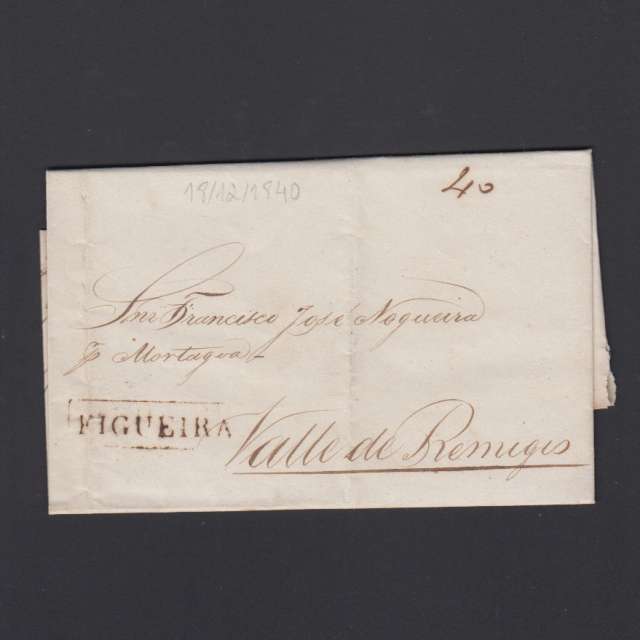 19/12/1840
40
Snr Francisco José Nogueira
p Mortagoa
FIGUEIRA
Valle de Remigis